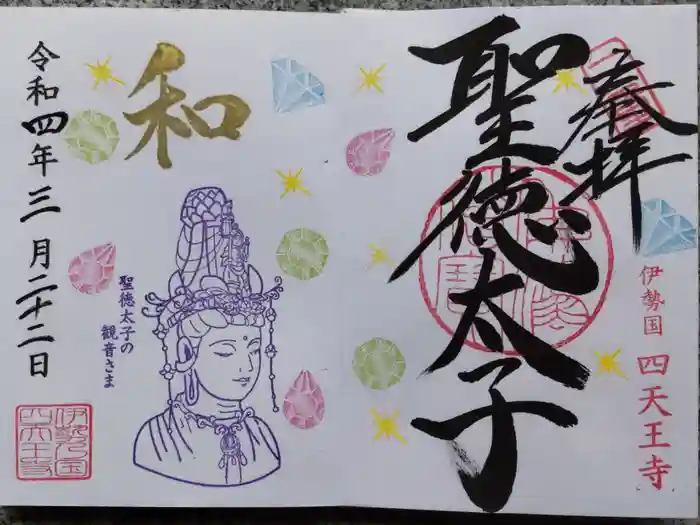 奉拝
聖徳太子
伊勢国 四天王寺
和
聖徳太子の
観音さま
令和四年三月二十二日
伊勢国
四天王寺